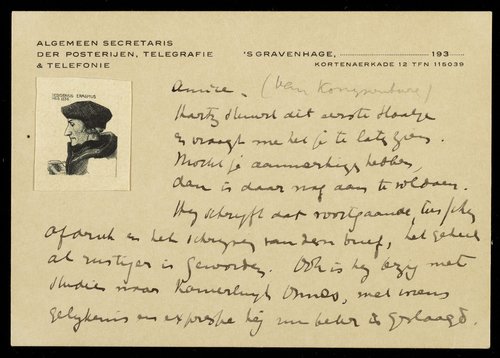 ALGEMEEN SECRETARIS
DER POSTERIJEN, TELEGRAFIE
& TELEFONIE
'S GRAVENHAGE, 193
KORTENAERKADE 12 TFN 115039
DESIDERIUS ERASMUS
Amice. (Van Konijnenburg)
Hartz stuurt dit eerste staatje
en vraagt me het je te laten zien.
Mocht je aanmerkingen hebben,
dan is daar nog aan te voldoen.
Hij schrijft dat voortgaande, tusschen
afdruk en het schrijven van dezen brief, het geheel
al rustiger is geworden. Ook is hij bezig met
studies naar Kamerlingh Onnes, met wiens
gelijkenis en expressie hij nu beter is geslaagd.